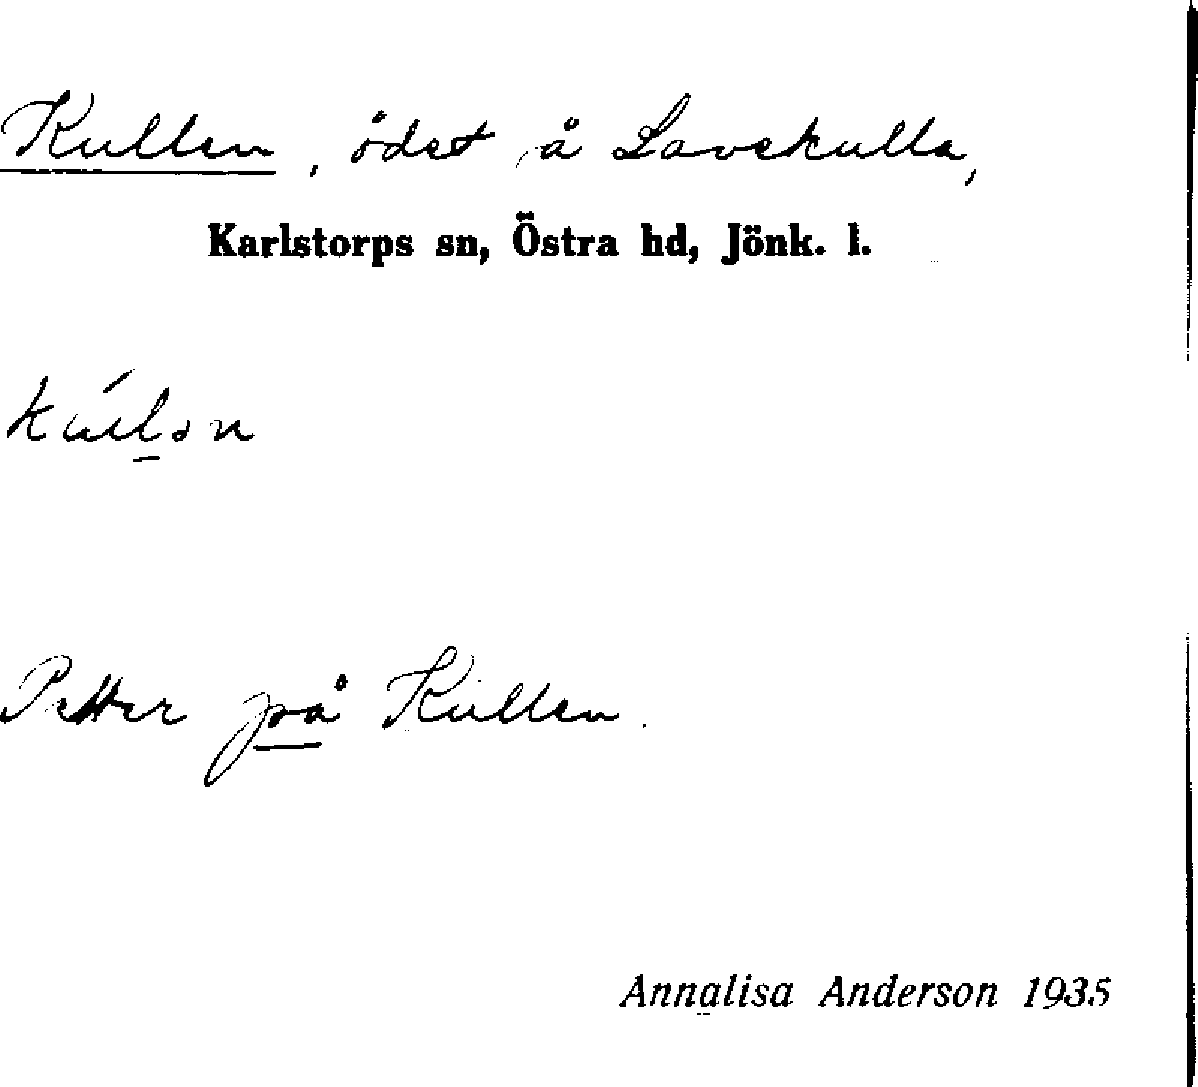 Kullen, ödet å Lavekulla,
Karlstorps sn, Östra hd, Jönk. l.
Petter på Kullen.
Annalisa Anderson 1935